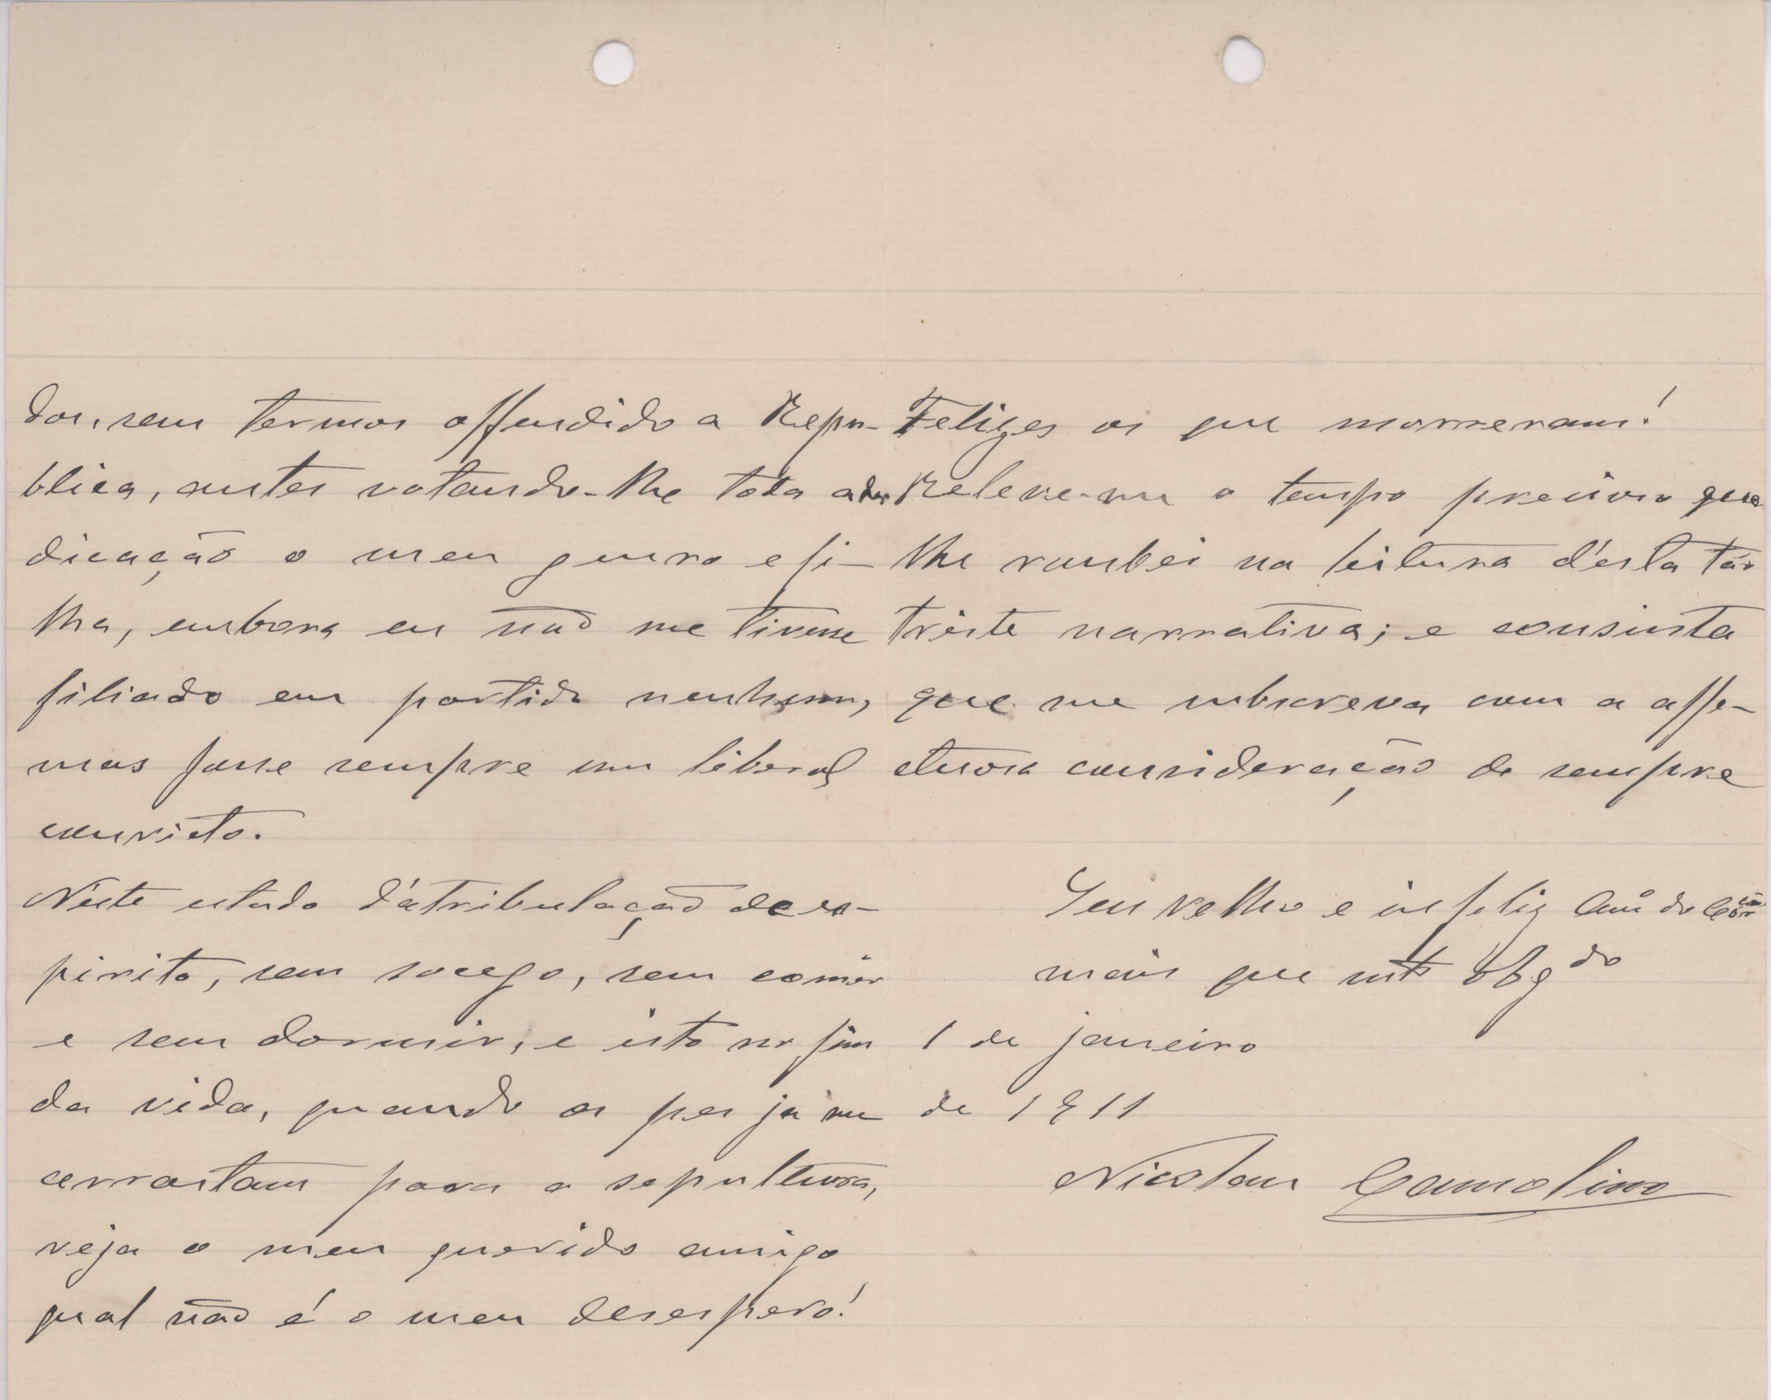 dos, sem termos offendido a Repu-
blica, antes votando-lhe toda a de-
dicação o meu genro e fi-
lha, embora eu não me tivesse
filiado em partido nenhum,
mas fosse sempre um liberal
convicto.
N'este estado d'atribulação de es-
pirito, sem socego, sem comêr
e sem dormir, e isto no fim
da vida, quando os pes ja me
arrastam para a sepultura,
veja o meu querido amigo
qual não é o meu desespero!
Felizes os que morreram!
Releve-me o tempo precioso que
lhe roubei na leitura d'esta tão
triste narrativa; e consinta
que me subscreva com a affe-
ctuosa consideração de sempre
Seu velho e infeliz Amº do
mais que mtº obgdo
1 de janeiro
de 1911
Nicolau Camolino